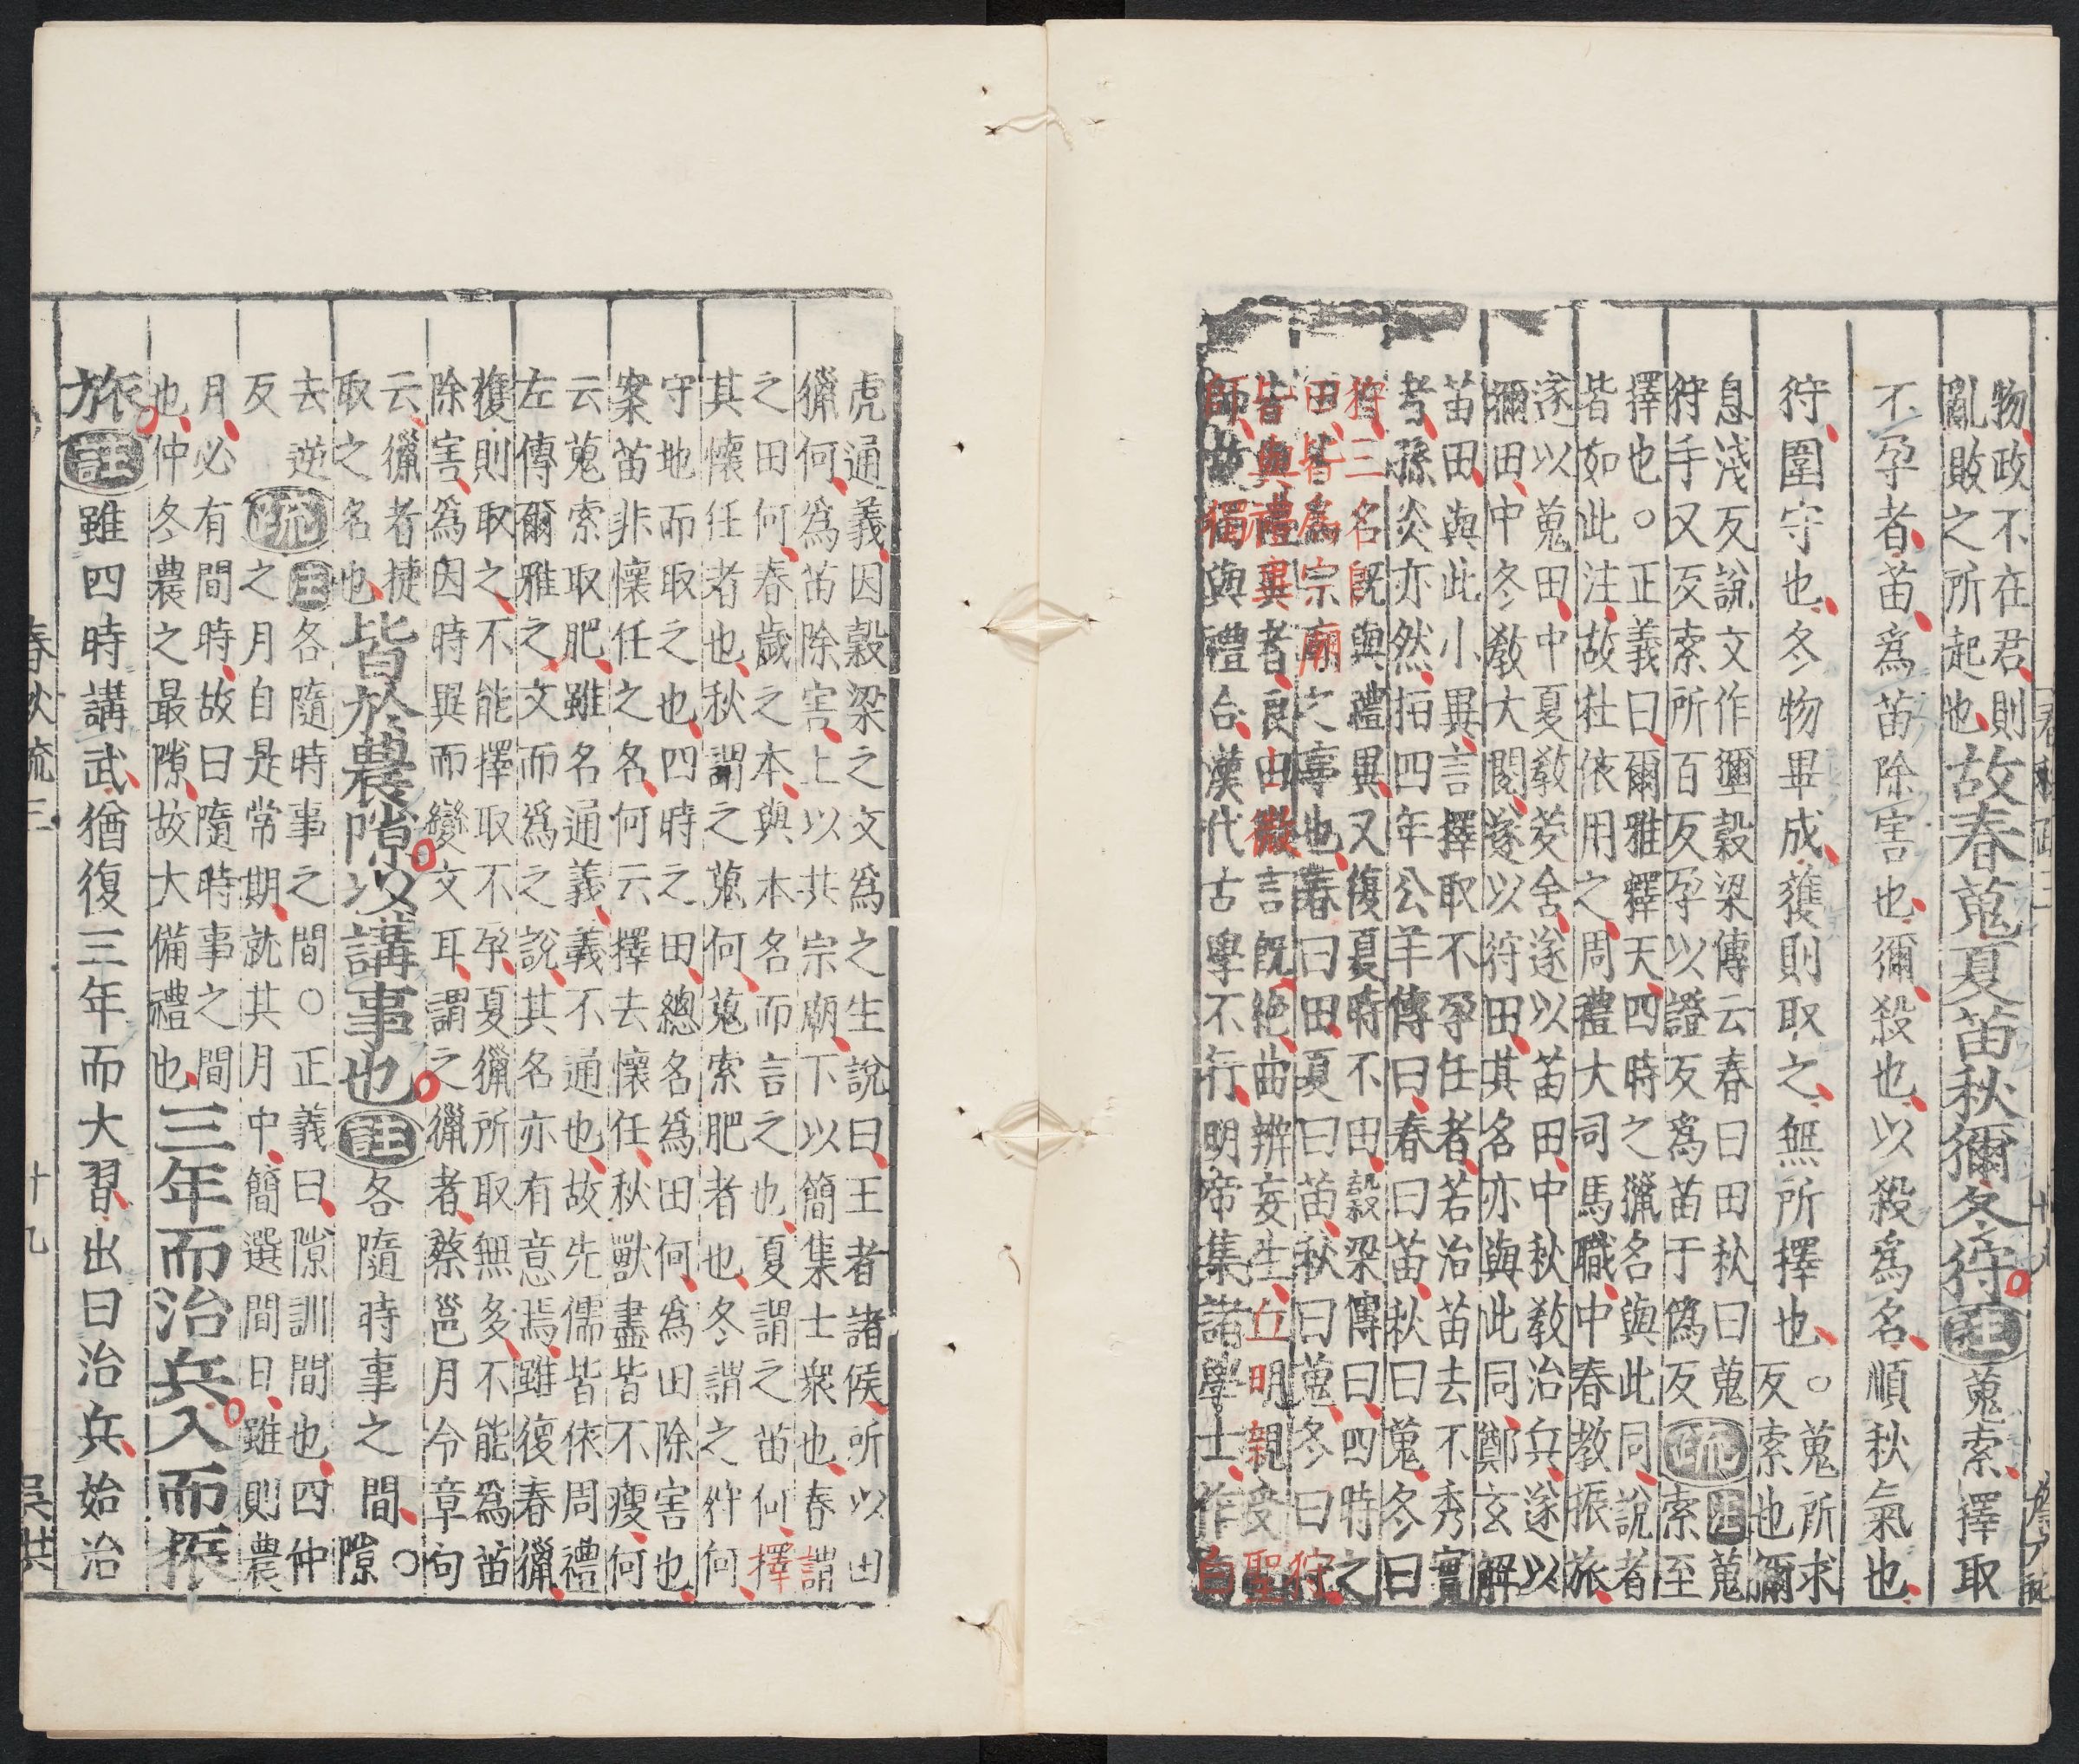 物政不在君則
亂敗之所起也
故春蒐夏苗秋彌冬狩註蒐索擇取
不孕者苗爲苗除害也彌殺也以殺爲名順秋氣也
狩圍守也冬物畢成獲則取之無所擇也
○蒐所求
反索也彌
息淺反說文作彌穀梁傳云春曰田秋曰蒐
狩手又反索所百反孕以證反爲苗于僞反
疏
註蒐
索至
擇也○正義曰爾雅釋天四時之獵名與此同說者
皆如此注故杜依用之周禮大司馬職中春教振旅
遂以蒐田中夏教茇舍遂以苗田中秋教治兵遂以
彌田中冬教大閱遂以狩田其名亦與此同鄭玄解
苗田與此小異言擇取不孕任者若治苗去不秀實
者孫炎亦然桓四年公羊傳曰春曰苗秋曰蒐冬曰
狩三名既與禮異又復夏時不田穀梁傳曰四時之
田皆爲宗廟之事也春曰田夏曰苗秋曰蒐冬曰狩
皆與禮異者良由微言既絶曲辨妄生丘明親受聖
師故獨與禮合漢代古學不行明帝集諸學士作白
虎通義因穀梁之文爲之生說曰王者諸侯所以田
獵何爲苗除害上以共宗廟下以簡集士衆也春謂
之田何春歲之本與本名而言之也夏謂之苗何擇
其懷任者也秋謂之蒐何蒐索肥者也冬謂之狩何
守地而取之也四時之田總名爲田何爲田除害也
案苗非懷任之名何云擇去懷任秋獸盡皆不瘦何
云蒐索取肥雖名通義義不通也故先儒皆依周禮
左傳爾雅之文而爲之說其名亦有意焉雖復春獵
獲則取之不能擇取不孕夏獵所取無多不能爲苗
除害爲因時異而變文耳謂之獵者蔡邕月令章句
云獵者捷
取之名也
皆於農隙以講事也註各隨時事之間
○
隙
去逆
反
疏
註各隨時事之間○正義曰隙訓間也四仲
之月自是常期就其月中簡選間日雖則農
月必有間時故曰隨時事之間
也仲冬農之最隙故大備禮也
三年而治兵入而振
旅註雖四時講武猶復三年而大習出曰治兵始治
春秋疏三
十九